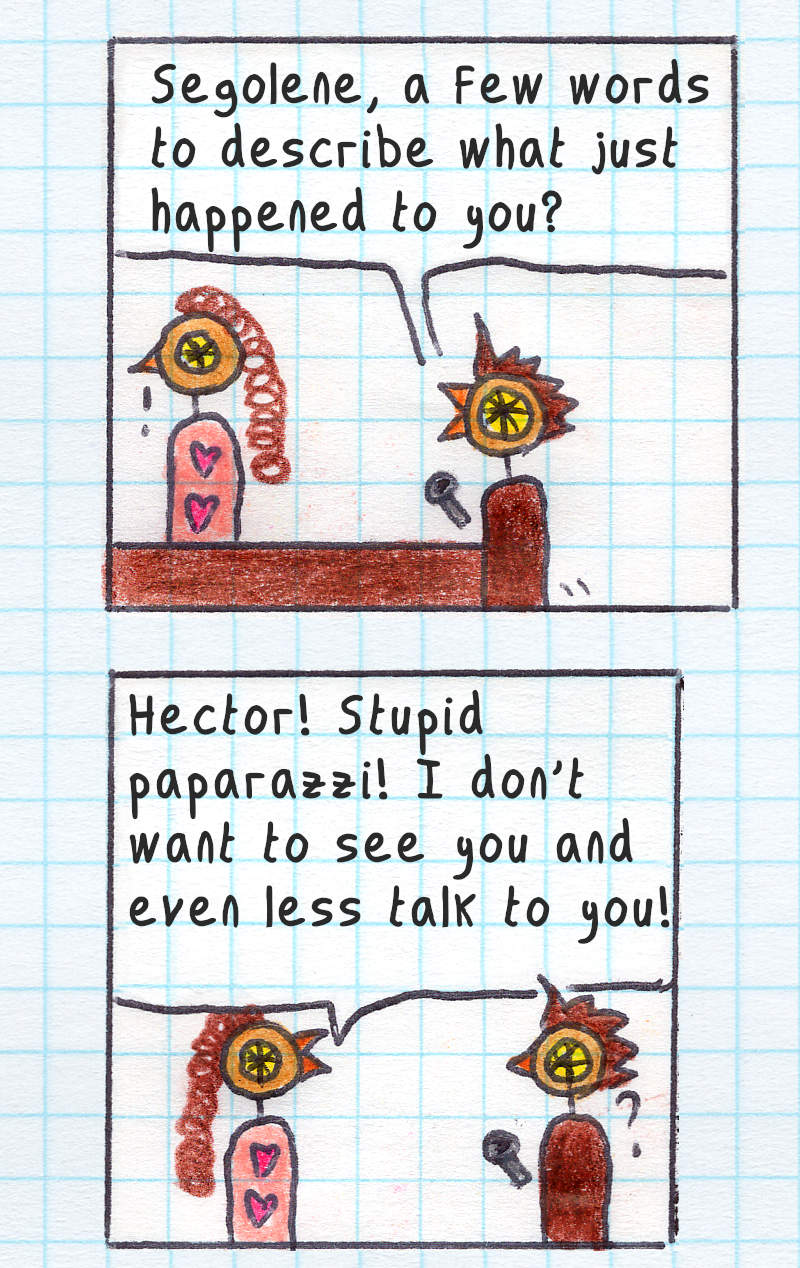 Segolene, a few words
to describe what just
happened to you?
!
Hector! Stupid
paparazzi! I don't
want to see you and
even less talk to you!
?